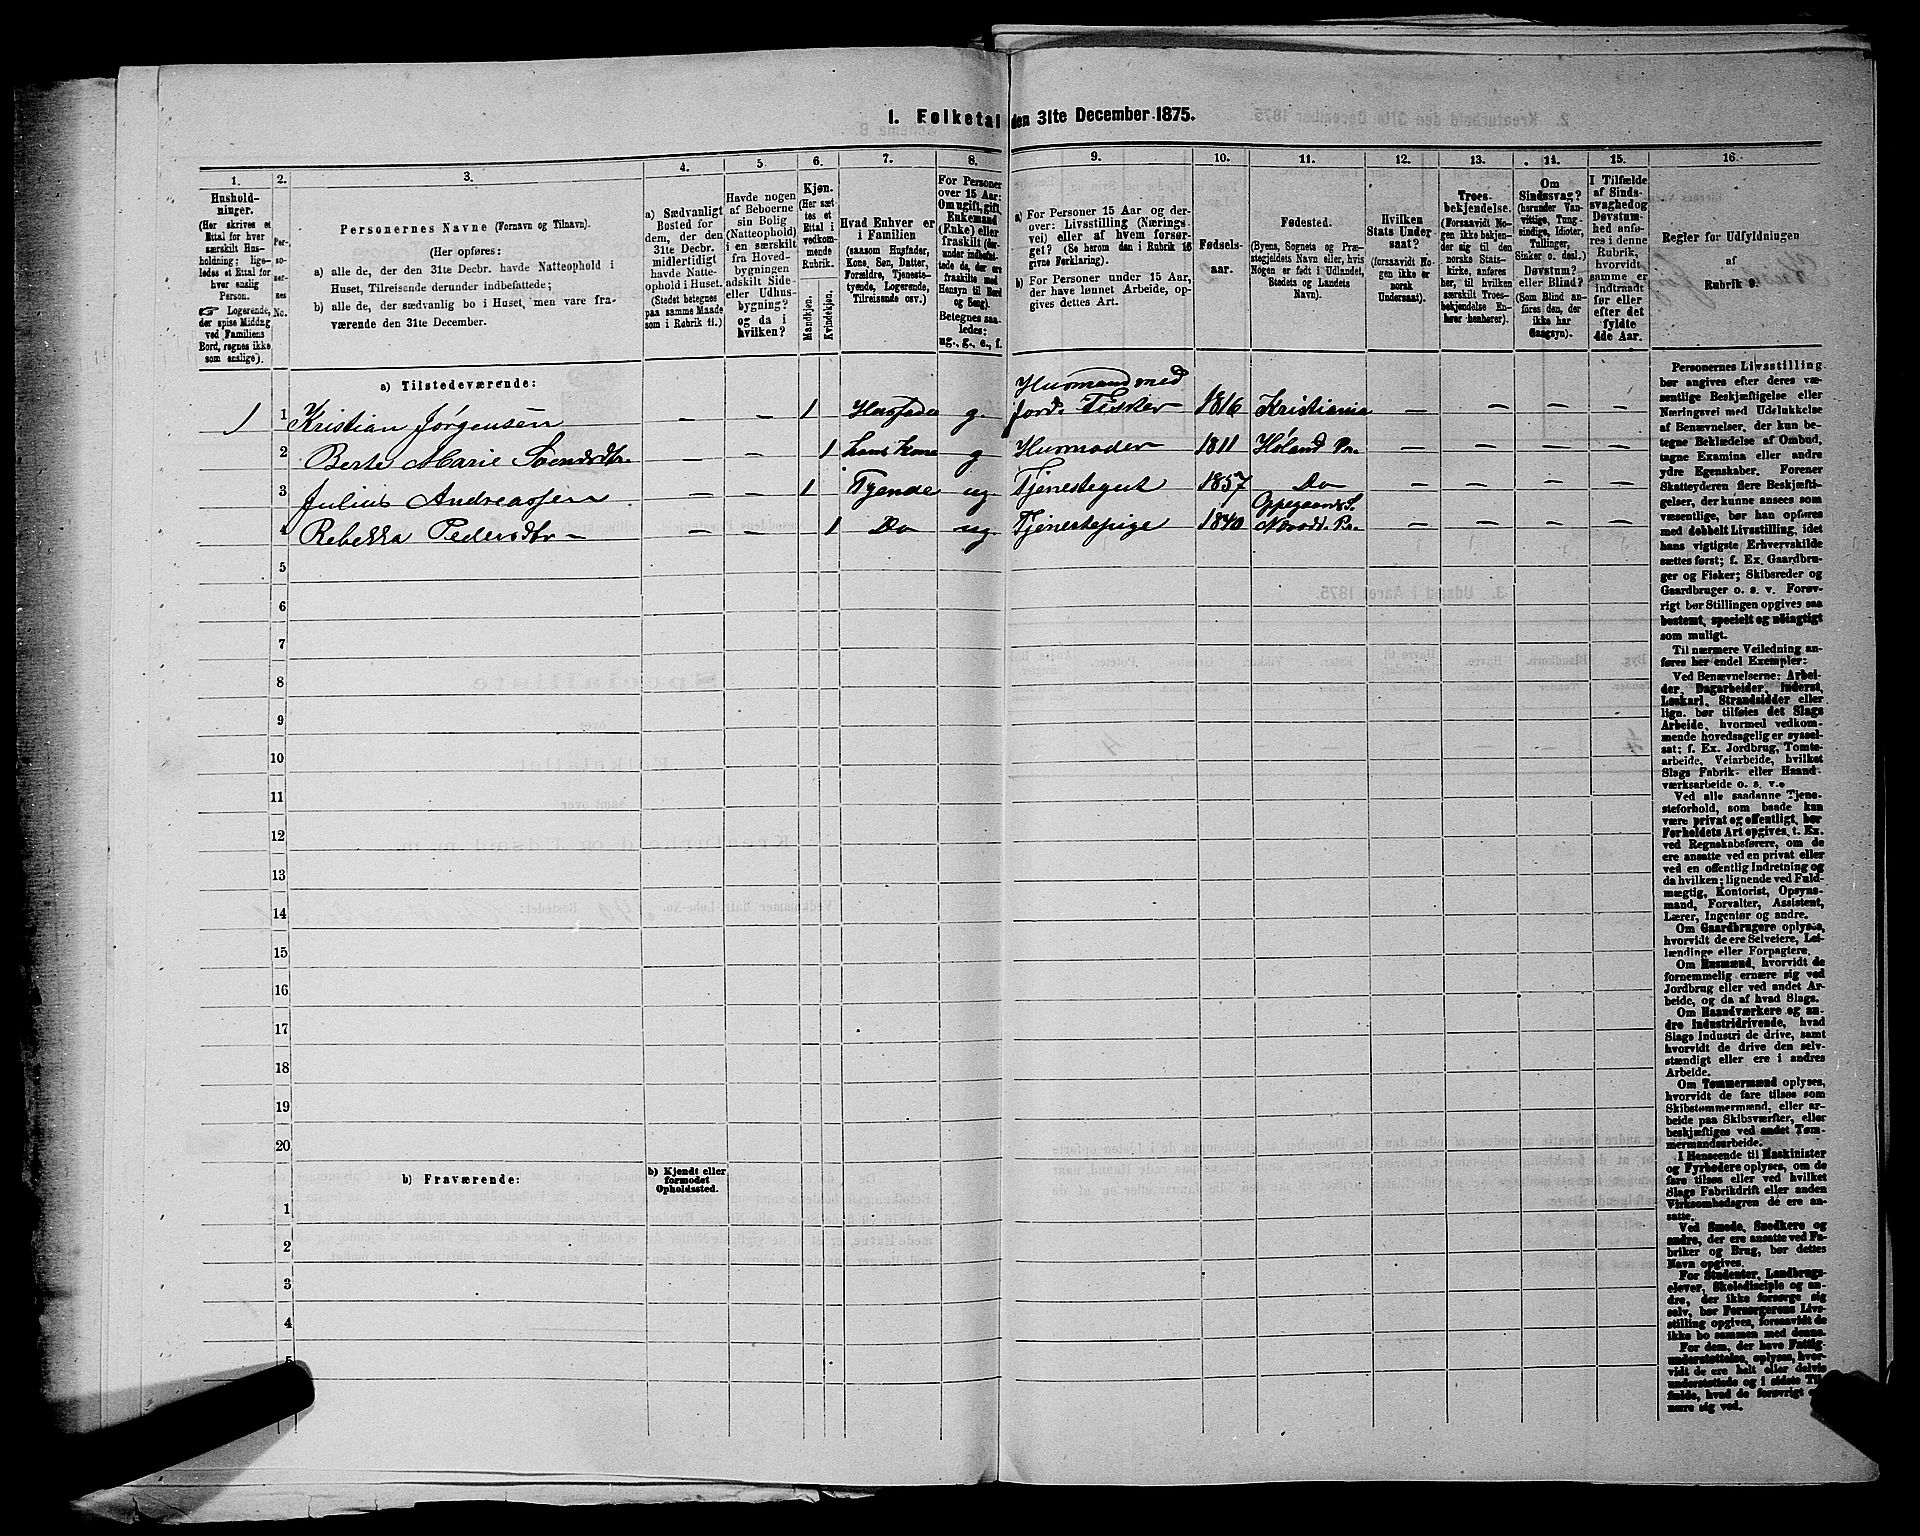 1. Folketal den 31te December 1875.
1. 2. 3. 4. 5. 6. 7. 8. 9. 10. 11. 12. 13. 14. 15. 16.
Hushold-
ninger.
(Her skrives et
Ettal for hver
særskilt Hus-
holdning; lige-
ledes et Ettal for
hver enslig
Person.
☞ Logerende,
der spise Middag
ved Familiens
Bord, regnes ikke
som enslige).
Per-
so-
ner-
nes
No.
Personernes Navne (Fornavn og Tilnavn).
(Her opføres:
a) alle de, der den 31te Decbr. havde Natteophold i
Huset, Tilreisende derunder indbefattede;
b) alle de, der sædvanlig bo i Huset, men vare fra-
værende den 31te December.
a) Sædvanligt
Bosted for
dem, der den
31te Decbr.
midlertidigt
havde Natte-
ophold i Huset.
(Stedet betegnes
paa samme Maade
som i Rubrik 11.)
Havde nogen
af Beboerne
sin Bolig
(Natteophold)
i en særskilt
fra Hoved-
bygningen
adskilt Side-
eller Udhus-
bygning?
og da i
hvilken?
Kjøn.
(Her sæt-
tes et
Ettal i
vedkom-
mende
Rubrik.
Mandkjøn.
Kvindekjøn.
Hvad Enhver er
i Familien
(saasom Husfader,
Kone, Søn, Datter,
Forældre, Tjeneste-
tyende, Logerende,
Tilreisende osv.)
For Personer
over 15 Aar:
Om ugift, gift,
Enkemand
(Enke) eller
fraskilt (der-
under indbefat-
tede de, der ere
fraskilte med
Hensyn til Bord
og Seng).
Betegnes saa-
ledes:
ug., g., e., f.
a) For Personer 15 Aar og der-
over: Livsstilling (Nærings-
vei) eller af hvem forsør-
get? (Se herom den i Rubrik 16
givne Forklaring).
b) For Personer under 15 Aar,
der have lønnet Arbeide, op-
gives dettes Art.
Fødsels-
aar.
Fødested.
(Byens, Sognets og Præ-
stegjeldets Navn eller, hvis
Nogen er født i Udlandet,
Stedets og Landets
Navn).
Hvilken
Stats Under-
saat?
(forsaavidt No-
gen ikke er
norsk
Undersaat).
Troes-
bekjendelse.
(Forsaavidt No-
gen ikke bekjen-
der sig til den
norske Stats-
kirke, anføres
her, til hvilken
særskilt Troes-
bekjendelse En-
hver henhører).
Om
Sindssvag?
(herunder Van-
vittige, Tung-
sindige, Idioter,
Tullinger,
Sinker o. desl.)
Døvstum?
eller Blind?
(Som Blind an-
føres den, der
ikke har
Gangsyn).
I Tilfælde
af Sinds-
svaghed og
Døvstum-
hed anfø-
res i denne
Rubrik,
hvorvidt
samme er
indtraadt
før eller
efter det
fyldte
4de Aar.
Regler for Udfyldningen
af
Rubrik 9.
a) Tilstedeværende:
1 1 Kristian Jørgensen — — 1 Husfader g. Husmand med
Jord. Fisker 1816 Kristiania — — — —
2 Berte Marie Svendsdtr. — — 1 hans Kone g Husmoder 1811 Høland Pr. — — — —
3 Julius Andreassen — — 1 Tyende ug. Tjenestegut 1857 Do — — — —
4 Rebekka Pedersdtr — — 1 Do ug. Tjenestepige 1840 Oppegaard S.
Næsodd. Pr. — — — —
5
6
7
8
9
10
11
12
13
14
15
16
17
18
19
20
b) Fraværende:
b) Kjendt eller
formodet
Opholdssted.
1
2
3
4
5
Personernes Livsstilling
bør angives efter deres væ-
sentlige Beskjæftigelse eller
Næringsvei med Udelukkelse
af Benævnelser, der kun be-
tegne Beklædelse af Ombud,
tagne Examina eller andre
ydre Egenskaber. Forener
Skatteyderen flere Beskjæfti-
gelser, der kunne ansees som
væsentlige, bør han opføres
med dobbelt Livsstilling, idet
hans vigtigste Erhvervskilde
sættes først; f. Ex. Gaardbru-
ger og Fisker; Skibsreder og
Gaardbruger o. s. v. Forøv-
rigt bør Stillingen opgives saa
bestemt, specielt og nøiagtigt
som muligt.
Til nærmere Veiledning an-
føres her endel Exempler:
Ved Benævnelserne: Arbei-
der, Dagarbeider, Inderst,
Løskarl, Strandsidder eller
lign. bør tilføies det Slags
Arbeide, hvormed vedkom-
mende hovedsagelig er syssel-
sat; f. Ex. Jordbrug, Tomte-
arbeide, Veiarbeide, hvilket
Slags Fabrik- eller Haand-
værksarbeide o. s. v.
Ved alle saadanne Tjene-
steforhold, som baade kan
være privat og offentligt, bør
Forholdets Art opgives, t. Ex.
ved Regnskabsførere, om de
ere ansatte ved en privat eller
ved en offentlig Indretning og
da hvilken; lignende ved Fuld-
mægtig, Kontorist, Opsyns-
mand, Forvalter, Assistent,
Lærer, Ingeniør og andre.
Om Gaardbrugere oplyses,
hvorvidt de ere Selveiere, Lei-
lændinge eller Forpagtere.
Om Husmænd, hvorvidt de
fornemmelig ernære sig ved
Jordbrug eller ved andet Ar-
beide, og da af hvad Slags.
Om Haandværkere og an-
dre Industridrivende, hvad
Slags Industri de drive, samt
hvorvidt de drive den selv-
stændigt eller ere i andres
Arbeide.
Om Tømmermænd oplyses,
hvorvidt de fare tilsøs som
Skibstømmermænd, eller ar-
beide paa Skibsværfter, eller
beskjæftiges ved andet Tøm-
mermandsarbeide.
I Henseende til Maskinister
og Fyrbødere oplyses, om de
fare tilsøs eller ved hvilket
Slags Fabrikdrift eller anden
Virksomhedsgren de ere an-
satte.
Ved Smede, Snedkere og
andre, der ere ansatte ved Fa-
briker og Brug, bør dettes
Navn opgives.
For Studenter, Landbrugs-
elever, Skoledisciple og an-
dre, der ikke forsørge sig
selv, bør Forsørgerens Livs-
stilling opgives, forsaavidt de
ikke bo sammen med denne.
For dem, der have Fattig-
understøttelse, oplyses, hvor-
vidt de ere helt eller delvis
understøttede og i sidste Til-
fælde, hvad de forøvrigt er-
nære sig ved.